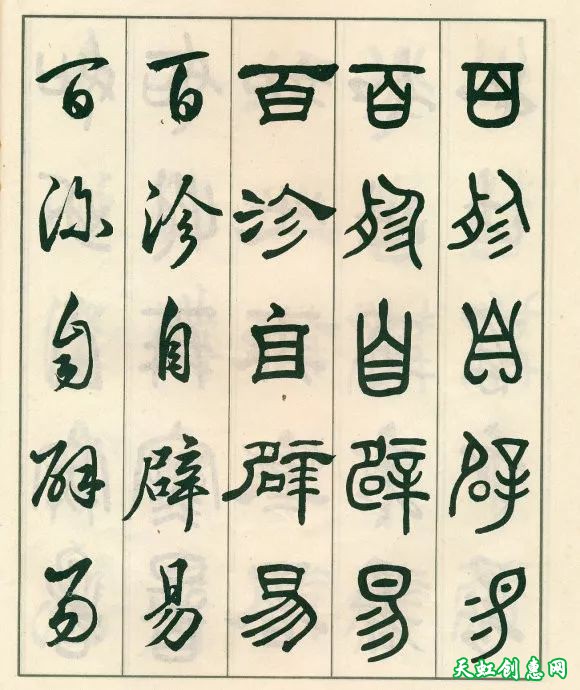 百殄自辟易
百殄自辟易
百沴自辟易
百沴自辟易
百沴自辟易
天虹创惠网